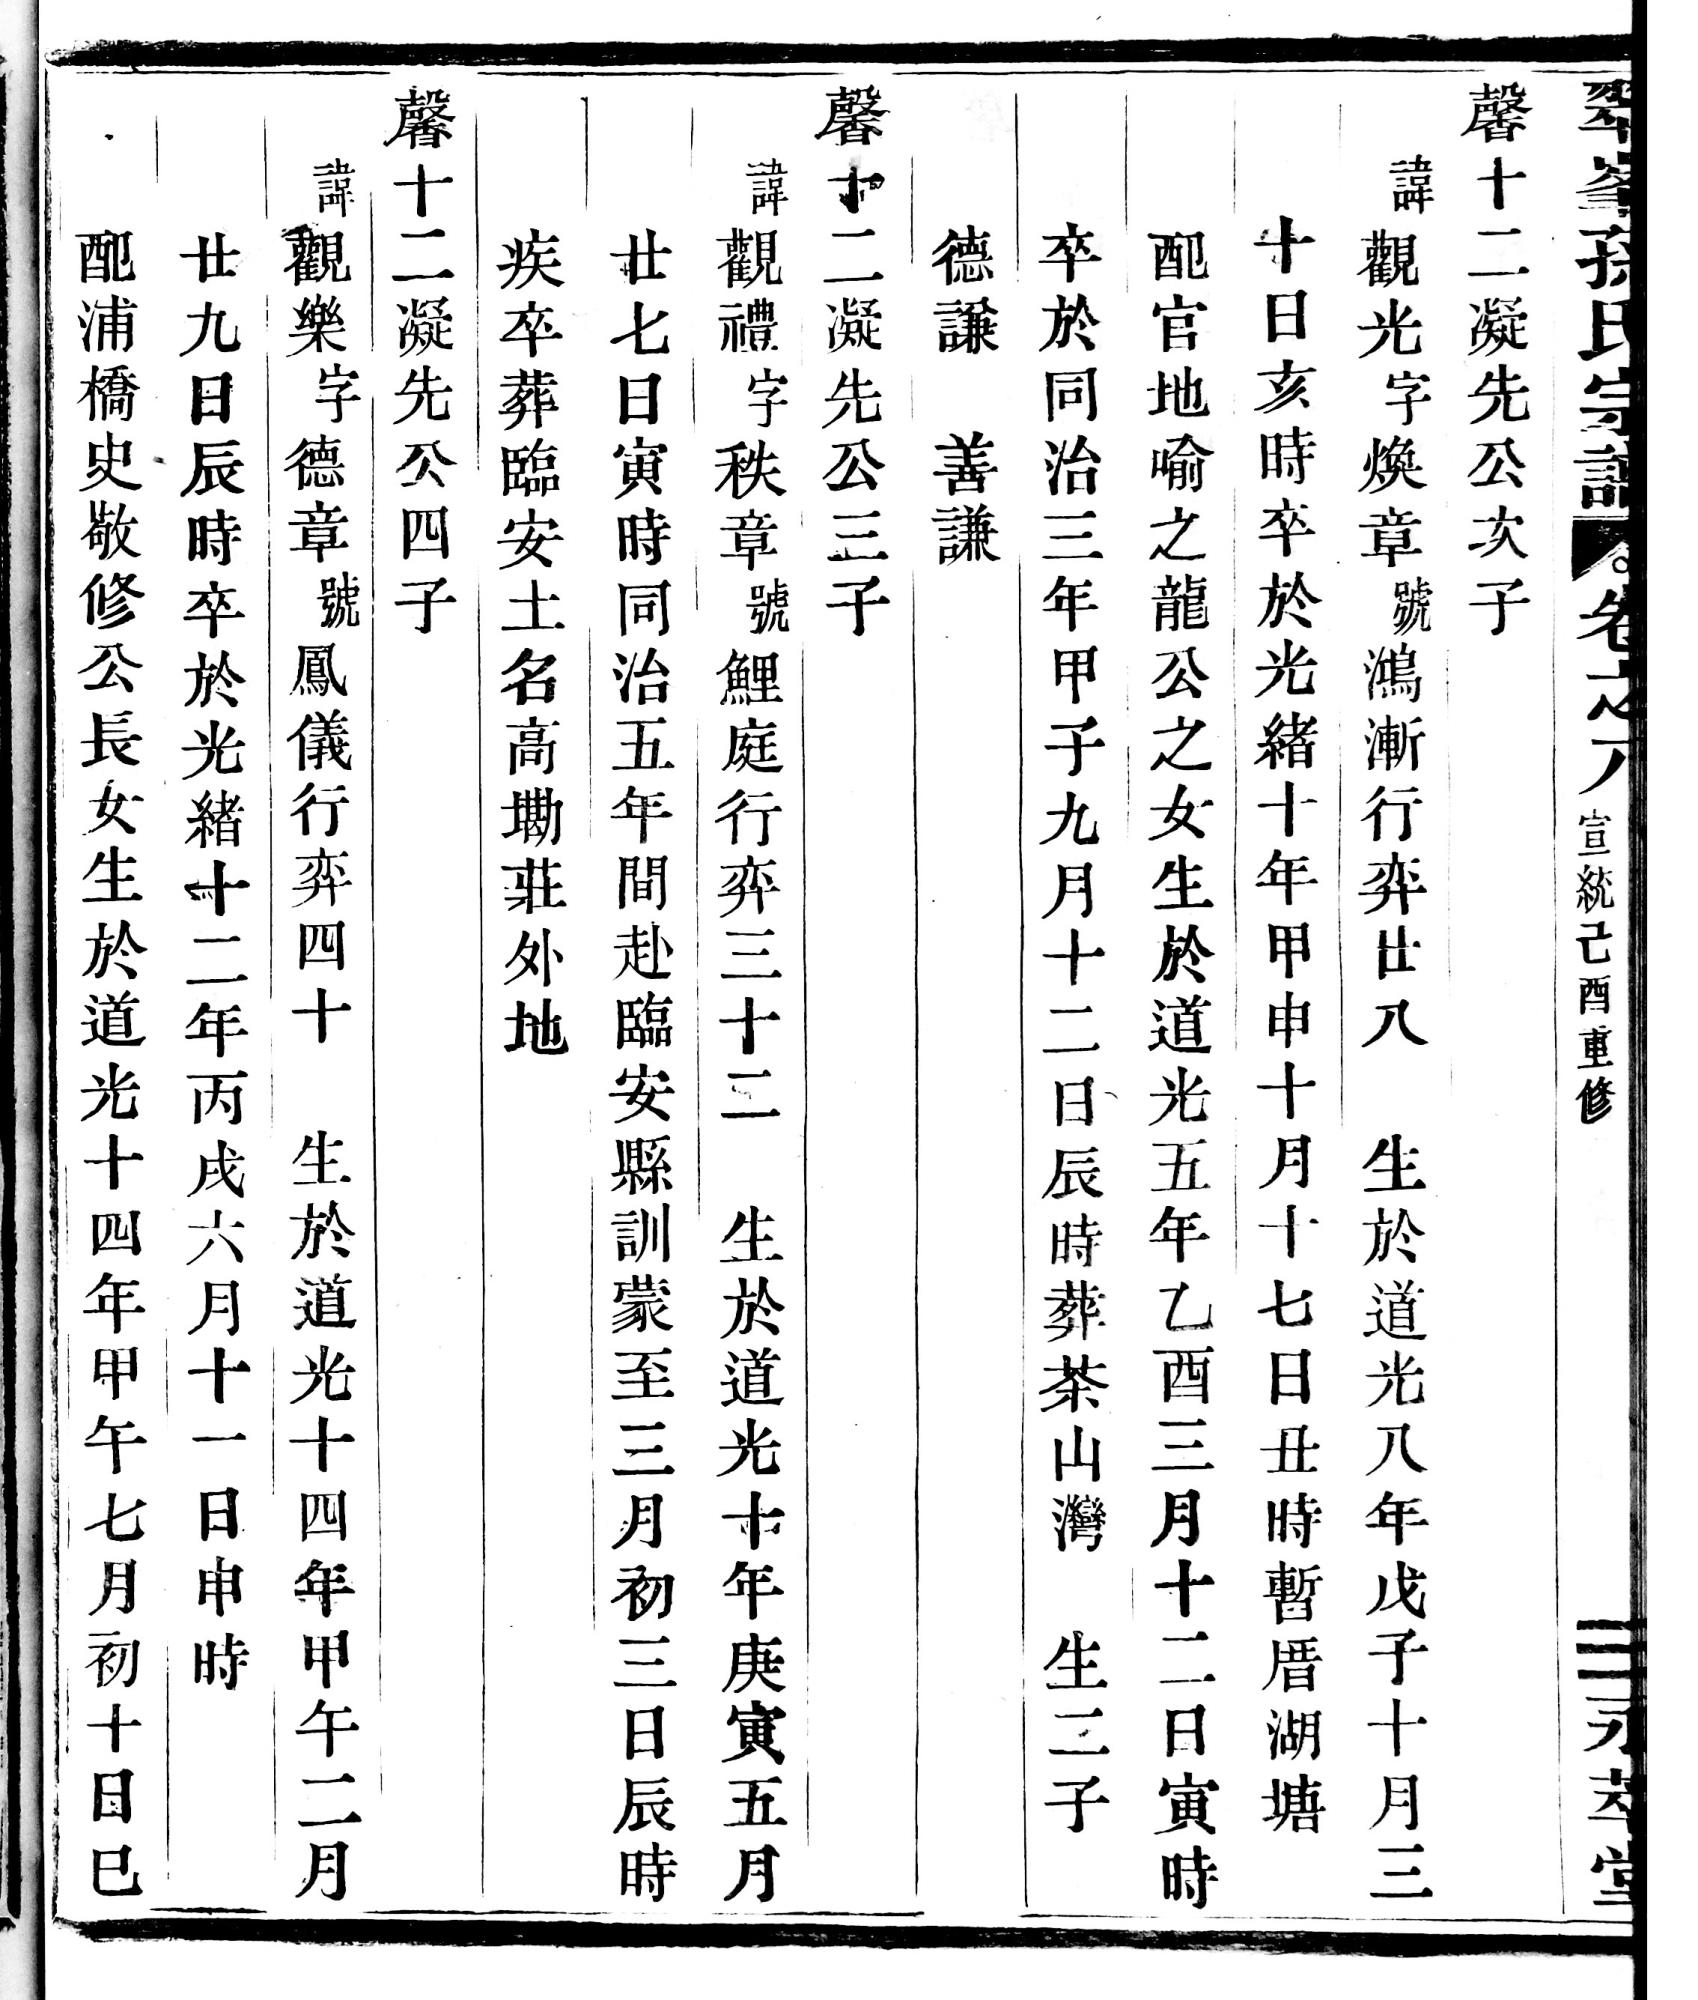 翠峯孫氏宗譜 卷之八 宣統己酉重修 三 永萃堂
馨十二凝先公次子
諱觀光字煥章號鴻漸行弈廿八 生於道光八年戊子十月三
十日亥時卒於光緒十年甲申十月十七日丑時暫厝湖塘
配官地喻之龍公之女生於道光五年乙酉三月十二日寅時
卒於同治三年甲子九月十二日辰時葬茶山灣 生二子
德謙 善謙
馨十二凝先公三子
諱觀禮字秩章號鯉庭行弈三十二 生於道光十年庚寅五月
廿七日寅時同治五年間赴臨安縣訓蒙至三月初三日辰時
疾卒葬臨安土名高墈莊外地
馨十二凝先公四子
諱觀樂字德章號鳳儀行弈四十 生於道光十四年甲午二月
廿九日辰時卒於光緒十二年丙戌六月十一日申時
配浦橋史敬修公長女生於道光十四年甲午七月初十日巳